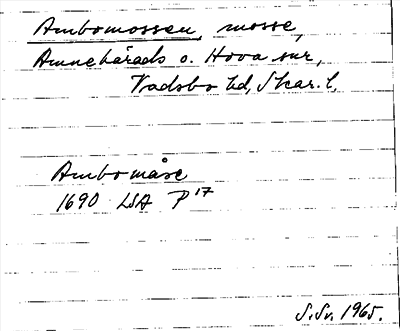 Ambomossen, mosse,
Amnehärads o. Hova snr,
Vadsbo hd, Skar. l.
Ambomåse
1690 LSA P 17
S. Sv. 1965.